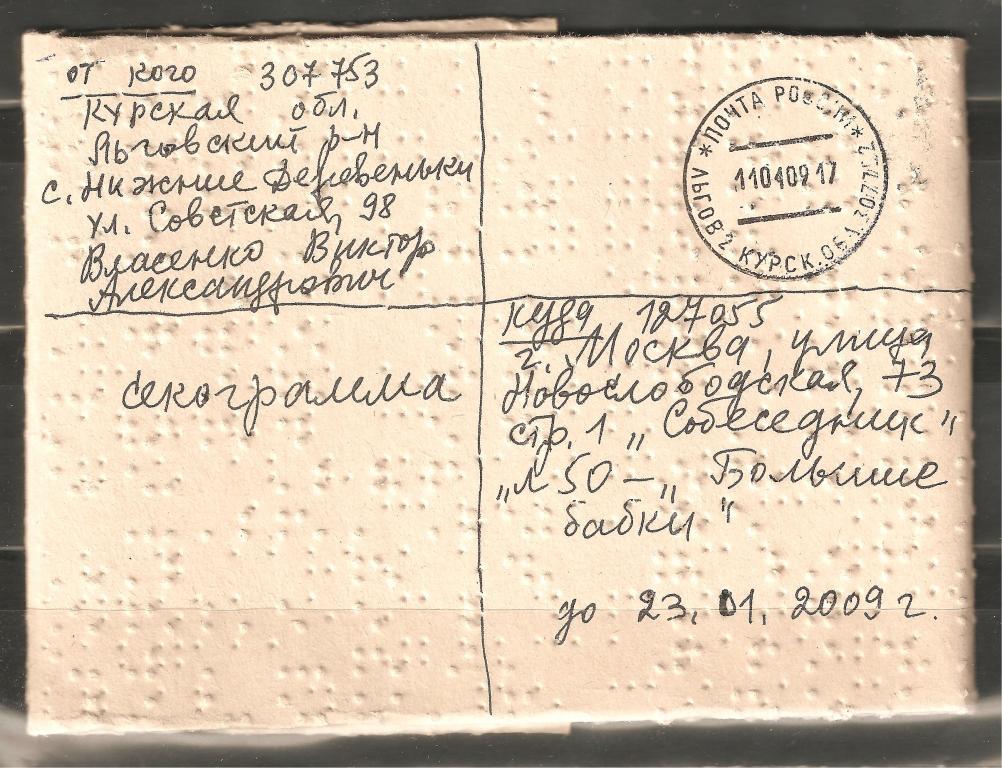 от кого 307753
Курская обл.
Льговский р-н
с. Нижние Деревеньки
ул. Советская, 98
Власенко Виктор
Александрович
*ПОЧТА РОССИИ*
11040917
ЛЬГОВ 2 КУРСК.ОБЛ.
секограмма
куда 127055
г. Москва, улица
Новослободская, 73
стр. 1 „Собеседник"
50 – „Большие
бабки"
до 23. 01. 2009 г.